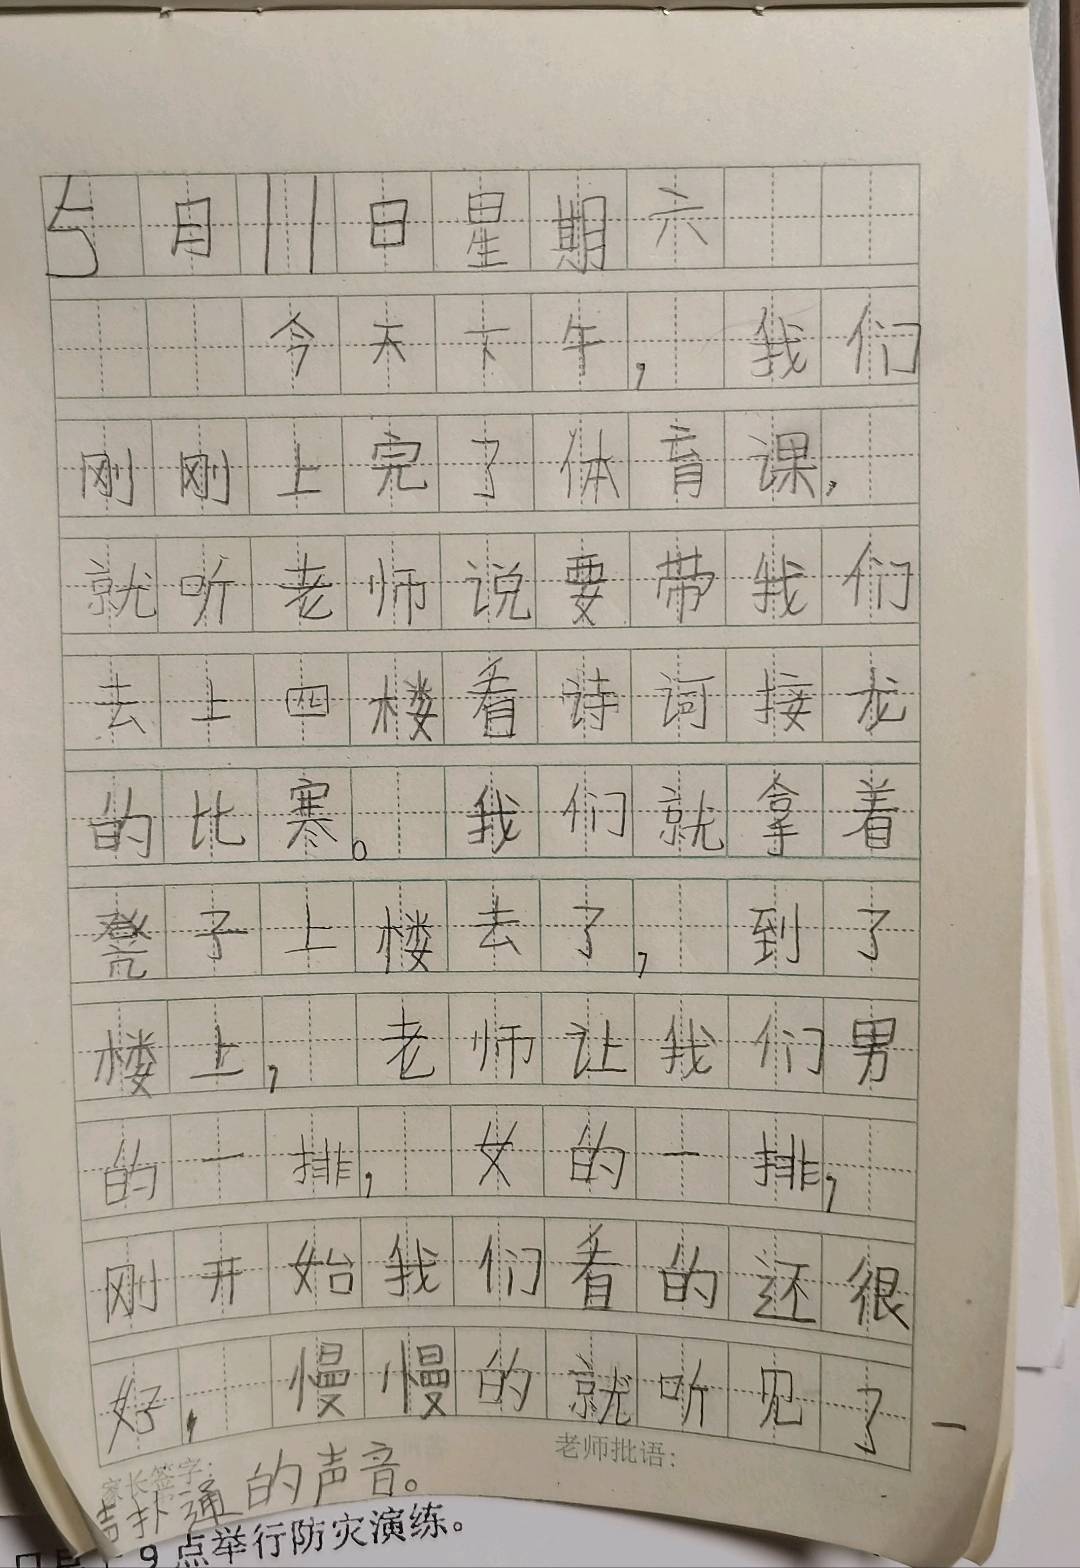 5月11日星期六
今天下午，我们
刚刚上完了体育课，
就听老师说要带我们
去上四楼看诗词接龙
的比寒。我们就拿着
凳子上楼去了，到了
楼上，老师让我们男
的一排，女的一排，
刚开始我们看的还很
好，慢慢的就听见了一
扑通的声音。
家长签字：
老师批语：
9点举行防灾演练。